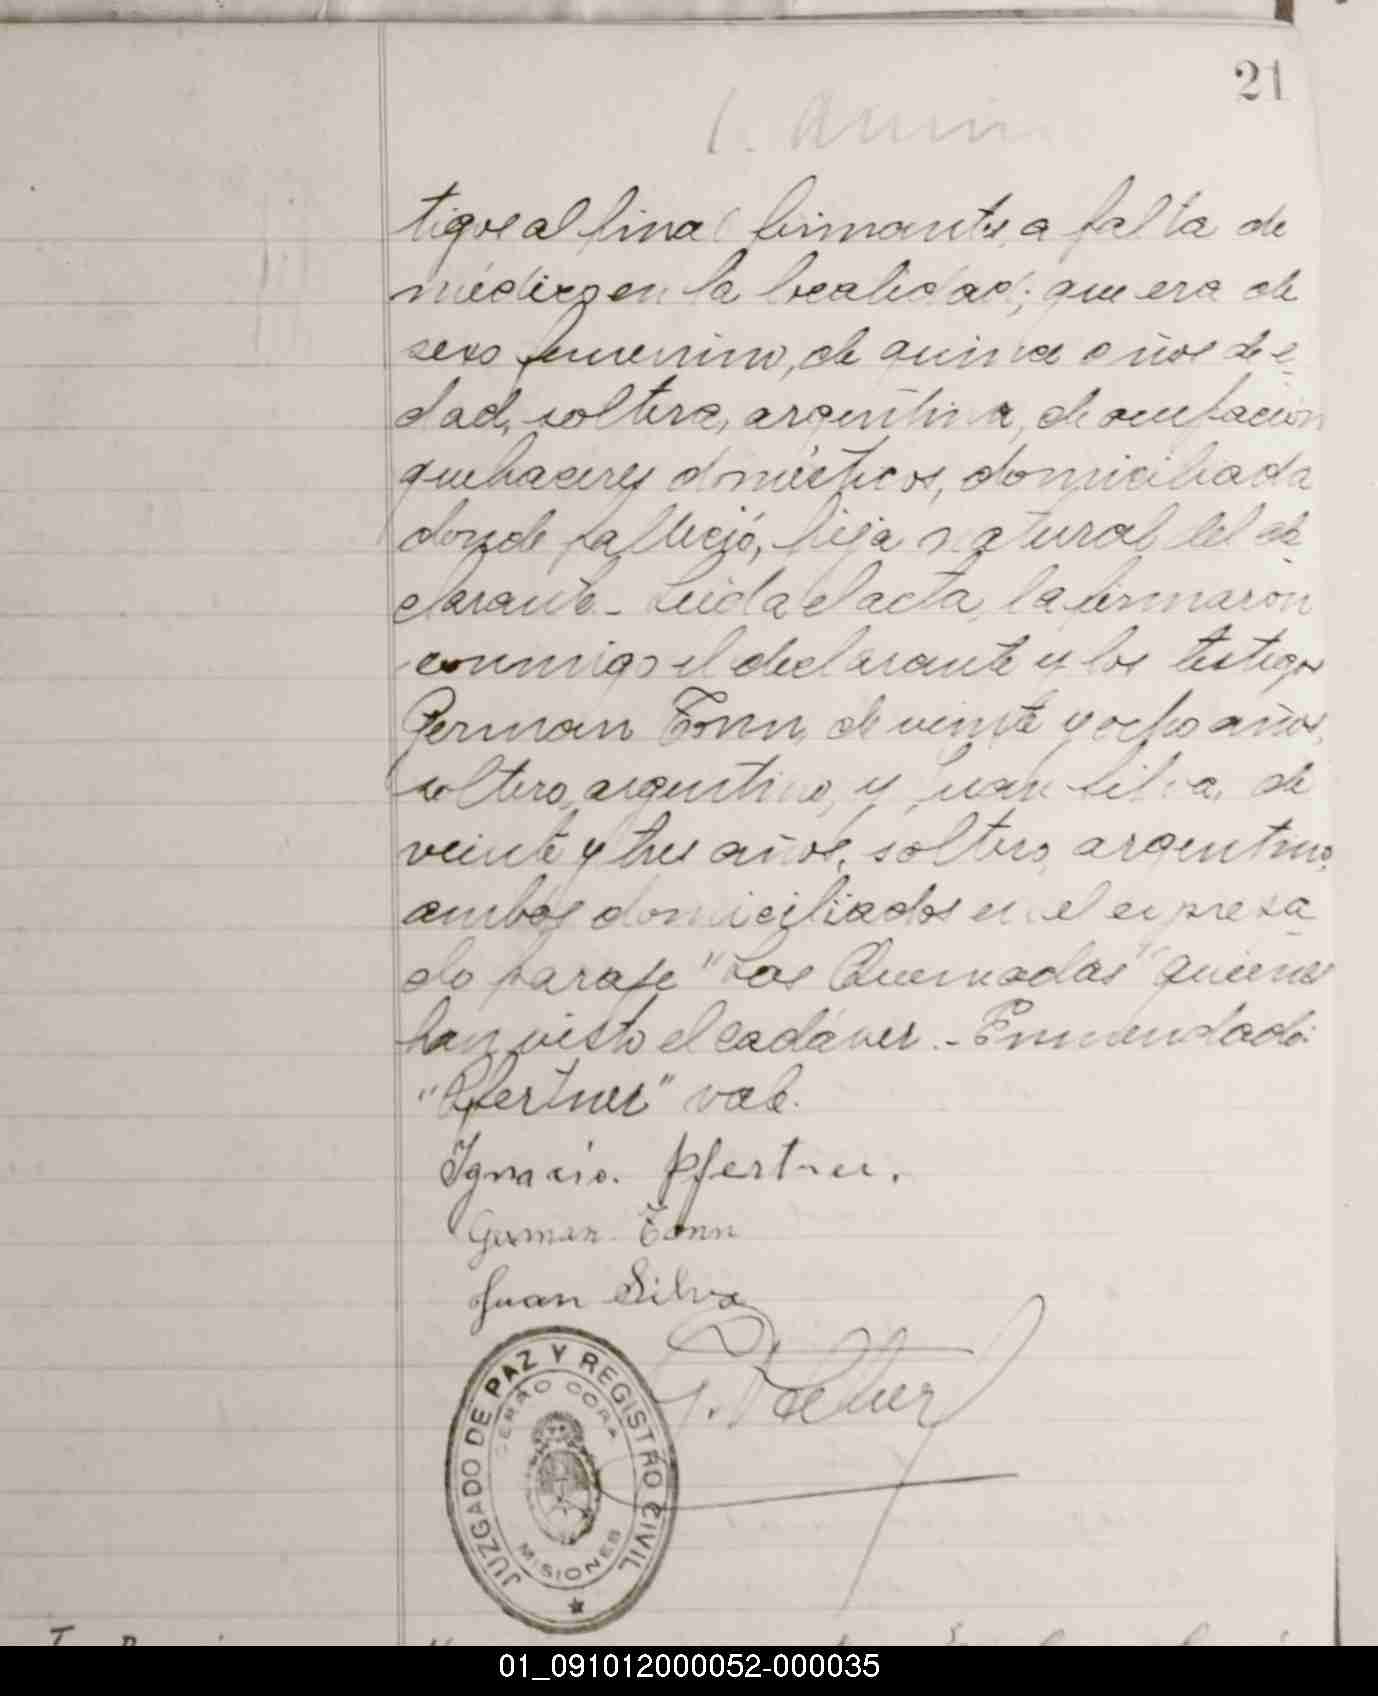 21
tigos al final firmantes, a falta de
médicos en la localidad; que era de
sexo femenino, de quince años de e
dad, soltera, argentina, de ocupación
quehaceres domésticos, domiciliada
donde falleció, hija natural del de
clarante.- Leida el acta, la firmaron
conmigo el declarante y los testigos
German Tonn, de veinte y ocho años,
soltero, argentino, y Juan Silva, de
veinte y tres años, soltero, argentino,
ambos domiciliados en el expresa
do paraje "Las Quemadas" quienes
han visto el cadáver.- Enmendado:
"Pfertner" vale.
Ignacio. Pfertner.
German Tonn
Juan Silva
JUZGADO DE PAZ Y REGISTRO CIVIL
CERRO CORA
MISIONES
01_091012000052-000035